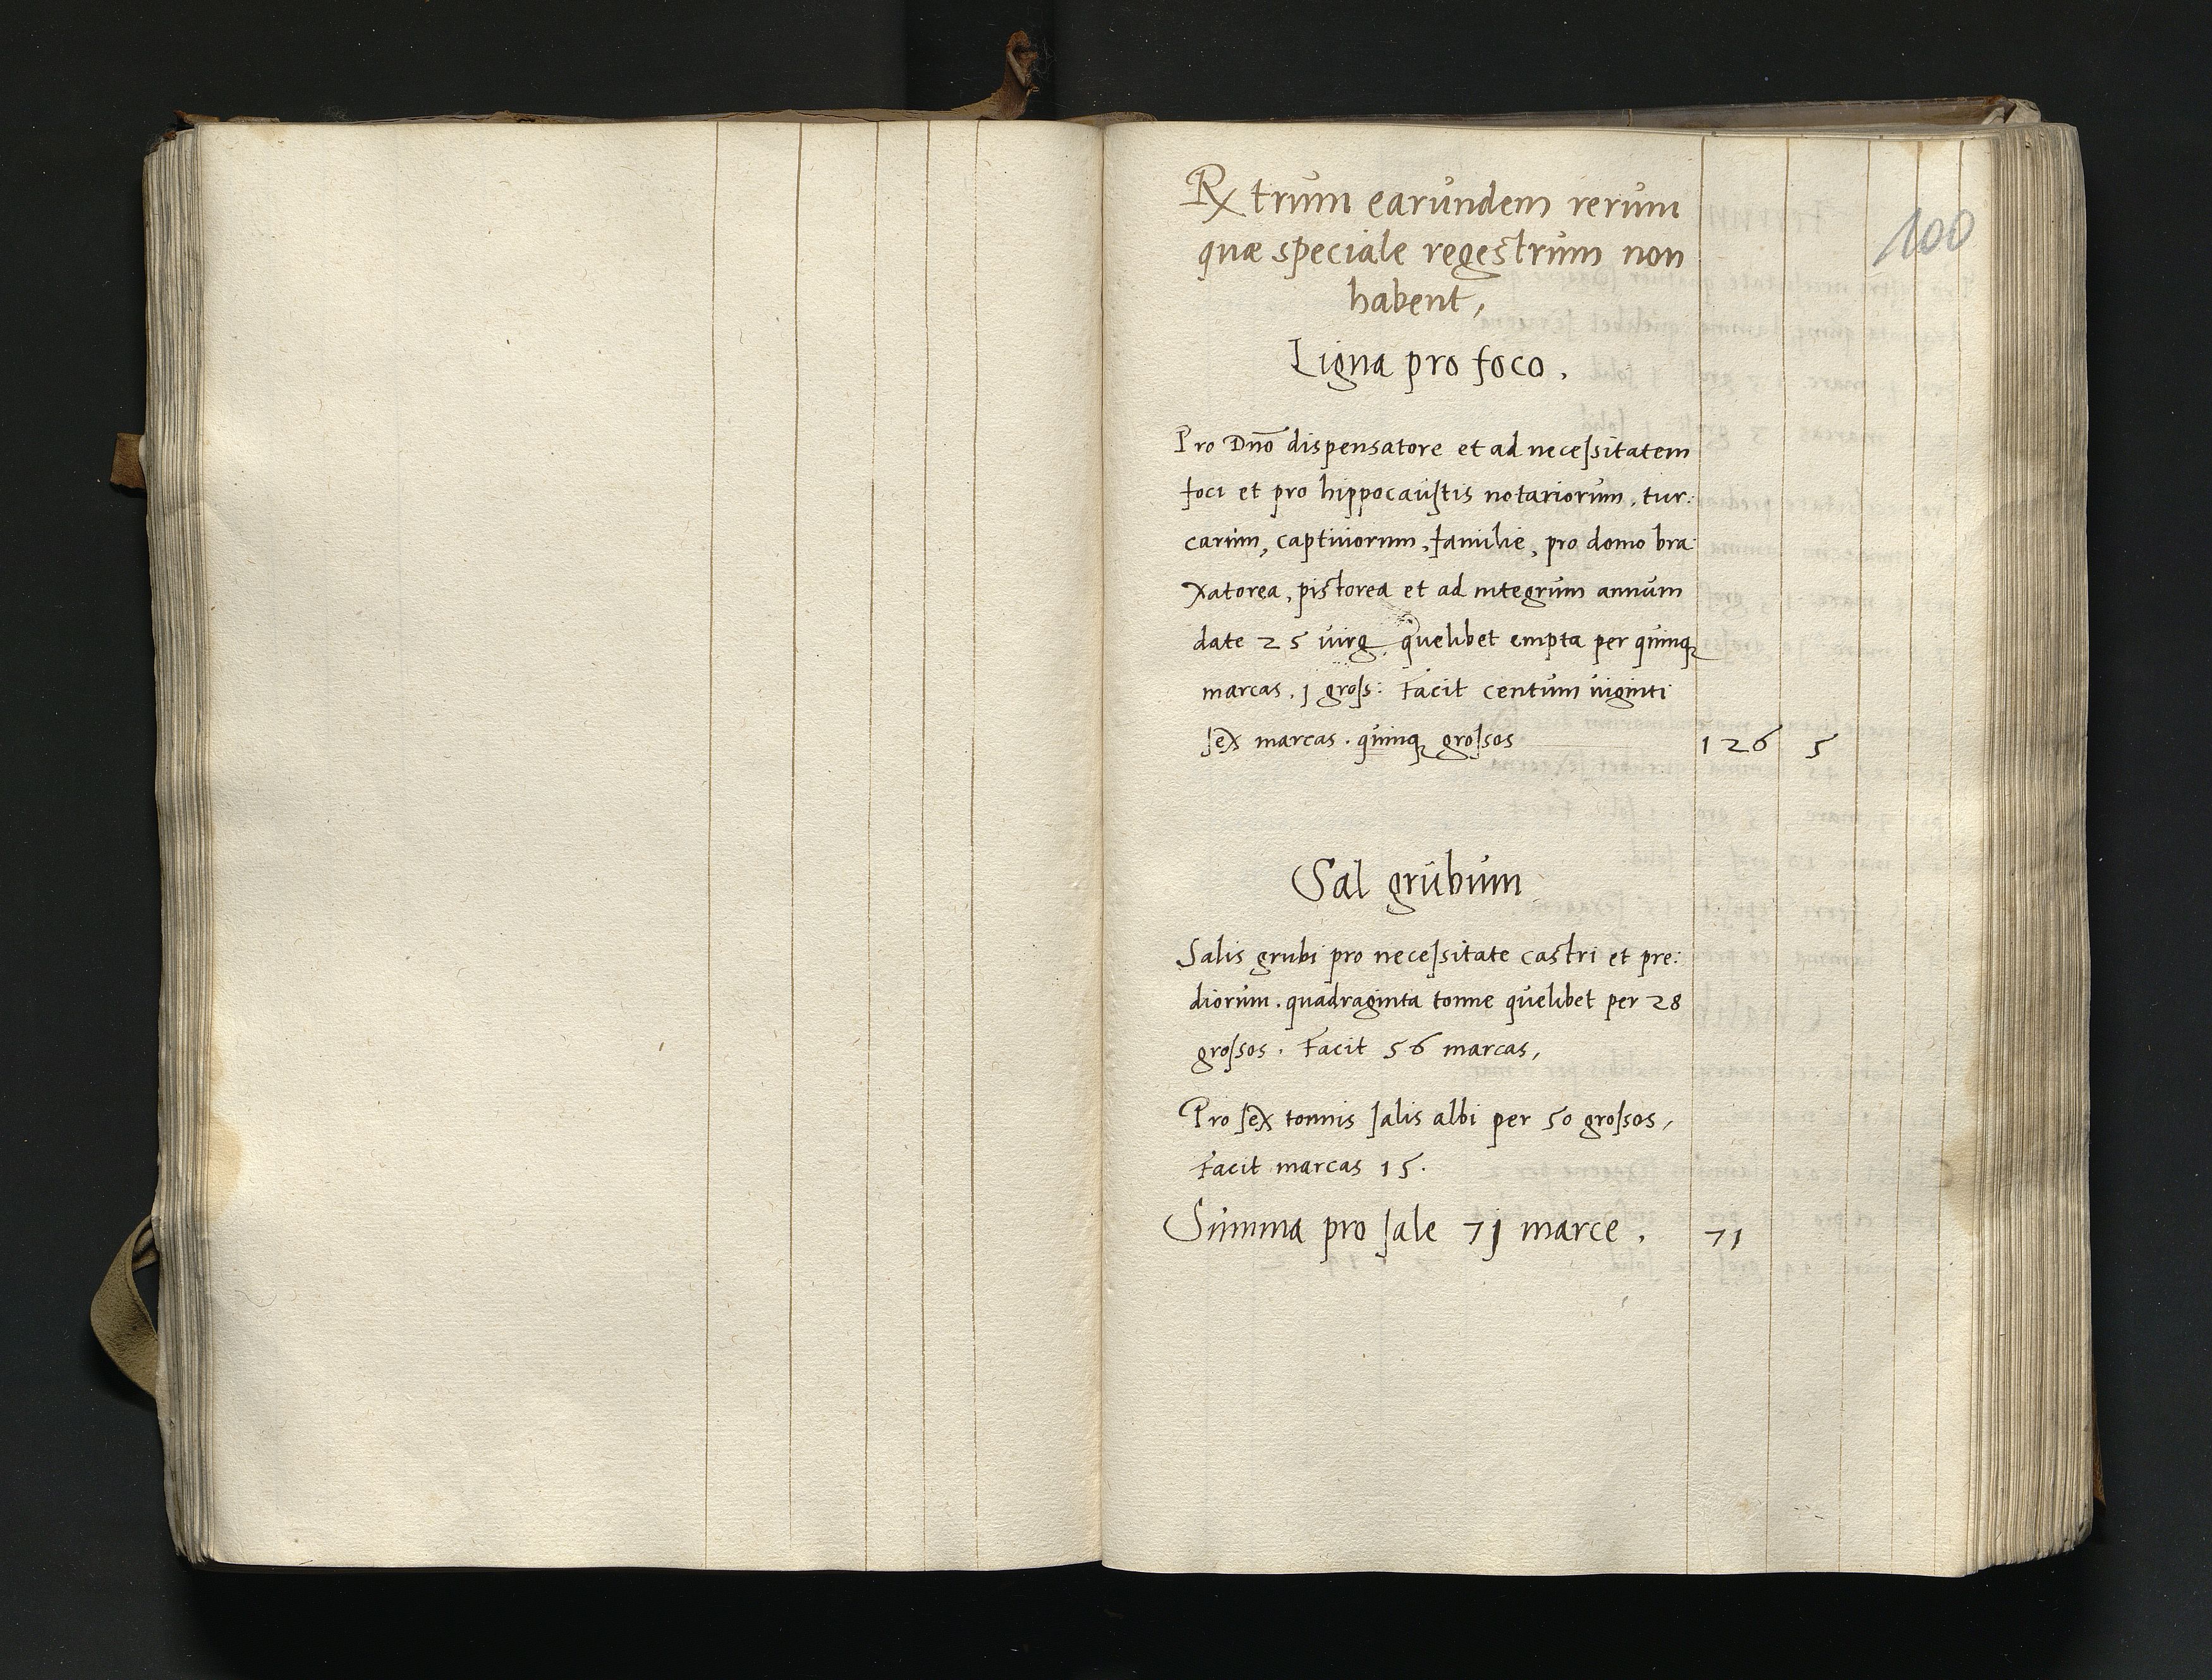 Rx trum earundem rerum
quæ speciale regestrum non
habent,
100
Ligna pro foco.
Pro Dnō dispensatore et ad necessitatem
foci et pro hippocaustis notariorum, tur:
carum, captiuorum, familie, pro domo bra
xatorea, pistorea et ad integrum annum
date 25 uirg. quelibet empta per quinq
marcas. 1 gross: Facit centum uiginti
sex marcas. quinq grossos 126 5
Sal grubum
Salis grubi pro necessitate castri et pre:
diorum. quadraginta tonne quelibet per 28
grossos. Facit 56 marcas,
Pro sex tonnis salis albi per 50 grossos,
Facit marcas 15.
Summa pro sale 71 marce. 71